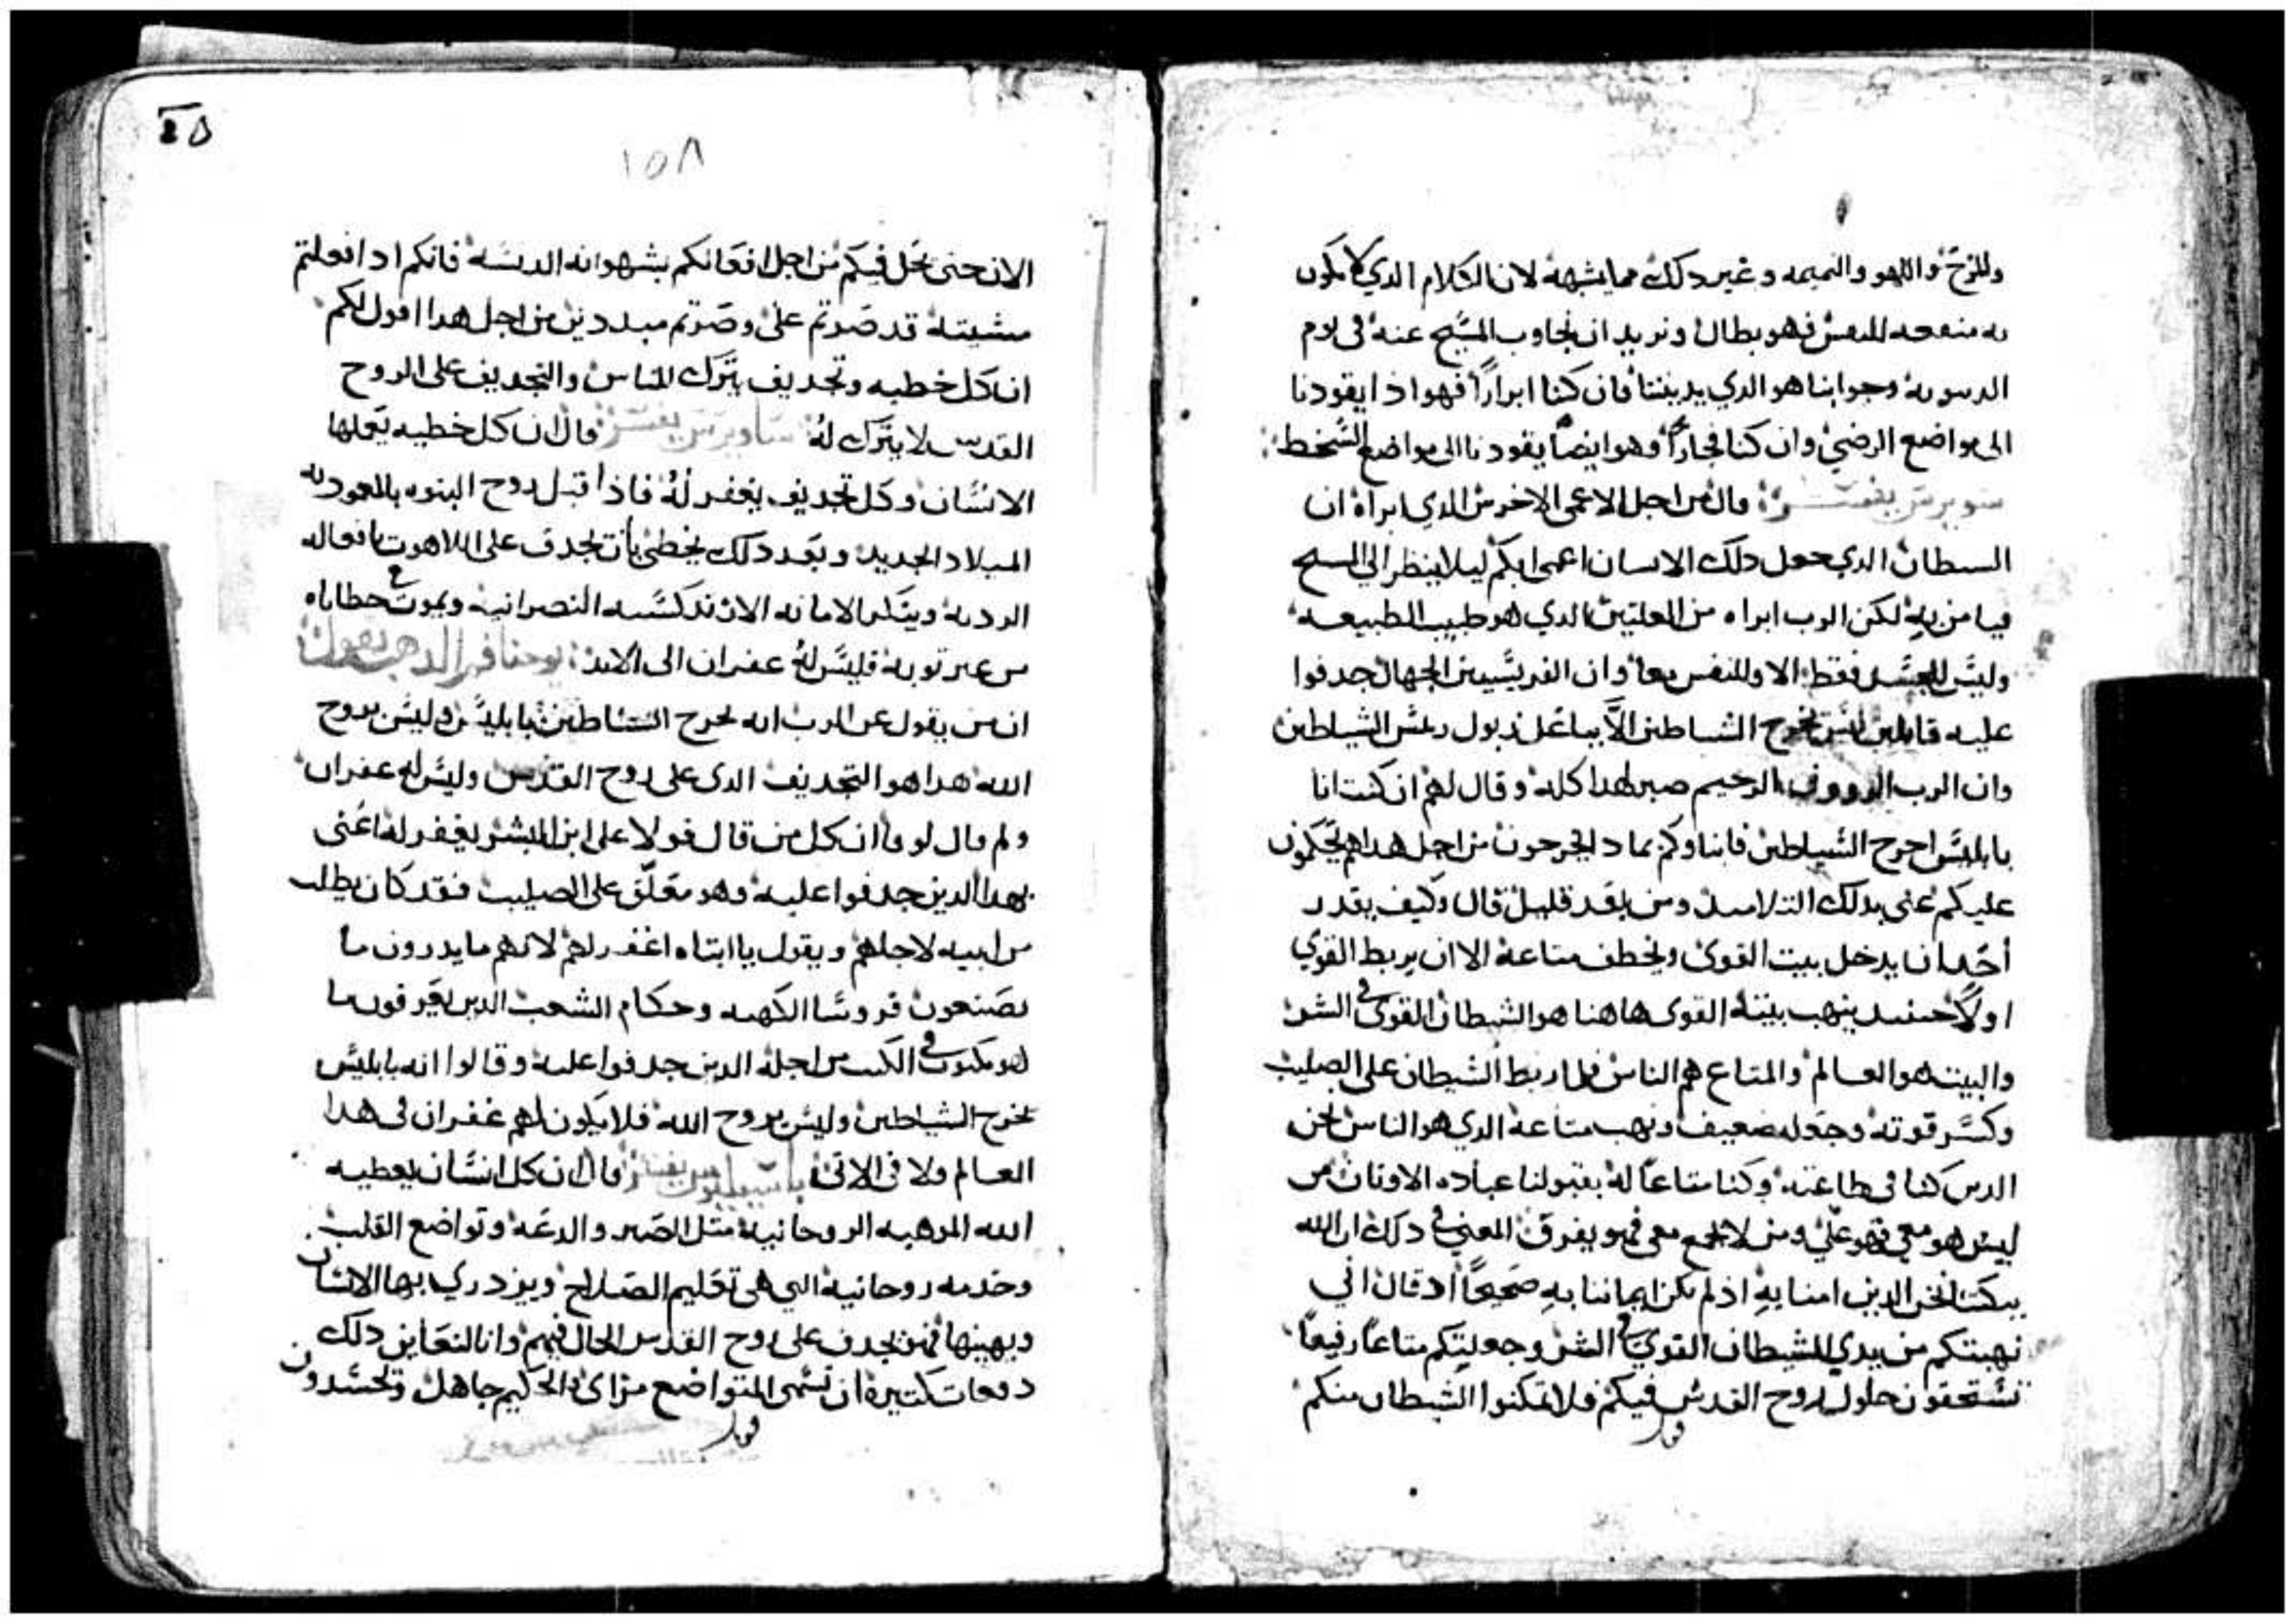 والمزح واللهو والنميمه وغير دلك مما يشبهه لان الكلام الدي لا يكون
به منفعه للنفس فهو بطال ونريد ان نجاوب المسيح عنه في يوم
الدينونه وجوابنا هو الدي يديننا فان كنا ابراراً فهو اذا يقودنا
الى مواضع الرضى وان كنا فجاراً فهو ايضاً يقودنا الى مواضع السخط
سويرس يفسر قال من اجل الاعمى الاخرس الدي ابراه ان
السيطان الدي جعل دلك الانسان اعمى ابكم ليلا ينظر الي المسيح
فيامن به لكن الرب ابراه من العلتين الدي هو طبيب الطبيعه
وليس للجسد فقط الا وللنفس معاً وان الفريسيين الجهال جدفوا
عليه قايلين ليس يخرج الشياطين الا بباعل زبول ريس الشياطين
وان الرب الرووف الرحيم صبر لهدا كله وقال لهم ان كنت انا
بابليس اخرج الشياطين فابناوكم بمادا يخرجون من اجل هدا هم يحكمون
عليكم عني بدلك التلاميد ومن بعد قليل قال وكيف يقدر
أحد ان يدخل بيت القوى ويخطف متاعه الا ان يربط القوي
اولاً حينيد ينهب بيته القوى هاهنا هو الشيطان القوى في الشر
والبيت هو العالم والمتاع هم الناس فلما ربط الشيطان على الصليب
وكسر قوته وجعله ضعيف ونهب متاعه الدي هو الناس نحن
الدين كنا في طاعته وكنا متاعاً له بقبولنا عباده الاوثان من
ليس هو معي فهو علي ومن لا يجمع معي فهو يفرق المعني في دلك ان الله
يبكتنا نحن الدين امنا به اذ لم يكن ايماننا به صحيحاً اد قال اني
نهبتكم من يدي الشيطان القوي في الشر وجعلتكم متاعاً رفيعاً
تستحقون حلول روح القدس فيكم فلا تمكنوا الشيطان منكم
١٥٨
الان حتى يحل فيكم من اجل افعالكم بشهواته الدنسه فانكم ادا فعلتم
مشيته قد صرتم علي وصرتم مبددين من اجل هدا اقول لكم
ان كل خطيه وتجديف يترك للناس والتجديف على الروح
القدس لا يترك له ساويرس يفسر قال ان كل خطيه يعملها
الانسان وكل تجديف يغفر له فاذا قبل روح البنوه بالمعموديه
الميلاد الجديد وبعد دلك يخطئ بان يجدف على اللاهوت بافعاله
الرديه وينكر الامانه الارتدكسيه النصرانيه ويموت مع خطاياه
من غير توبه فليس له غفران الى الابد يوحنا فم الدهب يقول
ان من يقول عن الرب انه يخرج الشياطين بابليس وليس بروح
الله هدا هو التجديف الدى على روح القدس وليس له غفران
ولم قال لوقا ان كل من قال قولا على ابن البشر يغفر له اعني
بهدا الدين جدفوا عليه وهو معلق على الصليب فقد كان يطلب
من ابيه لاجلهم ويقول يا ابتاه اغفر لهم لانهم ما يدرون ما
يصنعون فروسا الكهنه وحكام الشعب الدين يعرفون ما
هو مكتوب في الكتب من اجله الدين جدفوا عليه وقالوا انه بابليس
يخرج الشياطين وليس بروح الله فلا يكون لهم غفران في هدا
العالم ولا في الاتى باسيليوس يفسر قال ان كل انسان يعطيه
الله الموهبه الروحانيه مثل الصبر والدعه وتواضع القلب
وخدمه روحانيه التي هي تعليم الصلاح ويزدري بها الانسان
ويهينها فهو يجدف على روح القدس الحال فيهم وانا لنعاين دلك
دفعات كثيره ان نسمى المتواضع مراى والحكيم جاهل وتحسدون